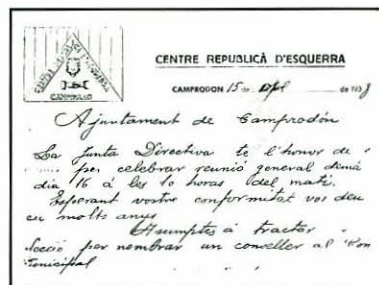 CENTRE REPUBLICÀ D'ESQUERRA
CAMPRODON
CENTRE REPUBLICÀ D'ESQUERRA
CAMPRODON 15 de Abril de 193
Ajuntament de Camprodón
La Junta Directiva te l'honor de
per celebrar reunió general demà
dia 16 á les 10 horas del matí.
Esperant vostre conformitat vos deu
en molts anys
Asumptes á tractar
lecció per nombrar un conseller al
municipal